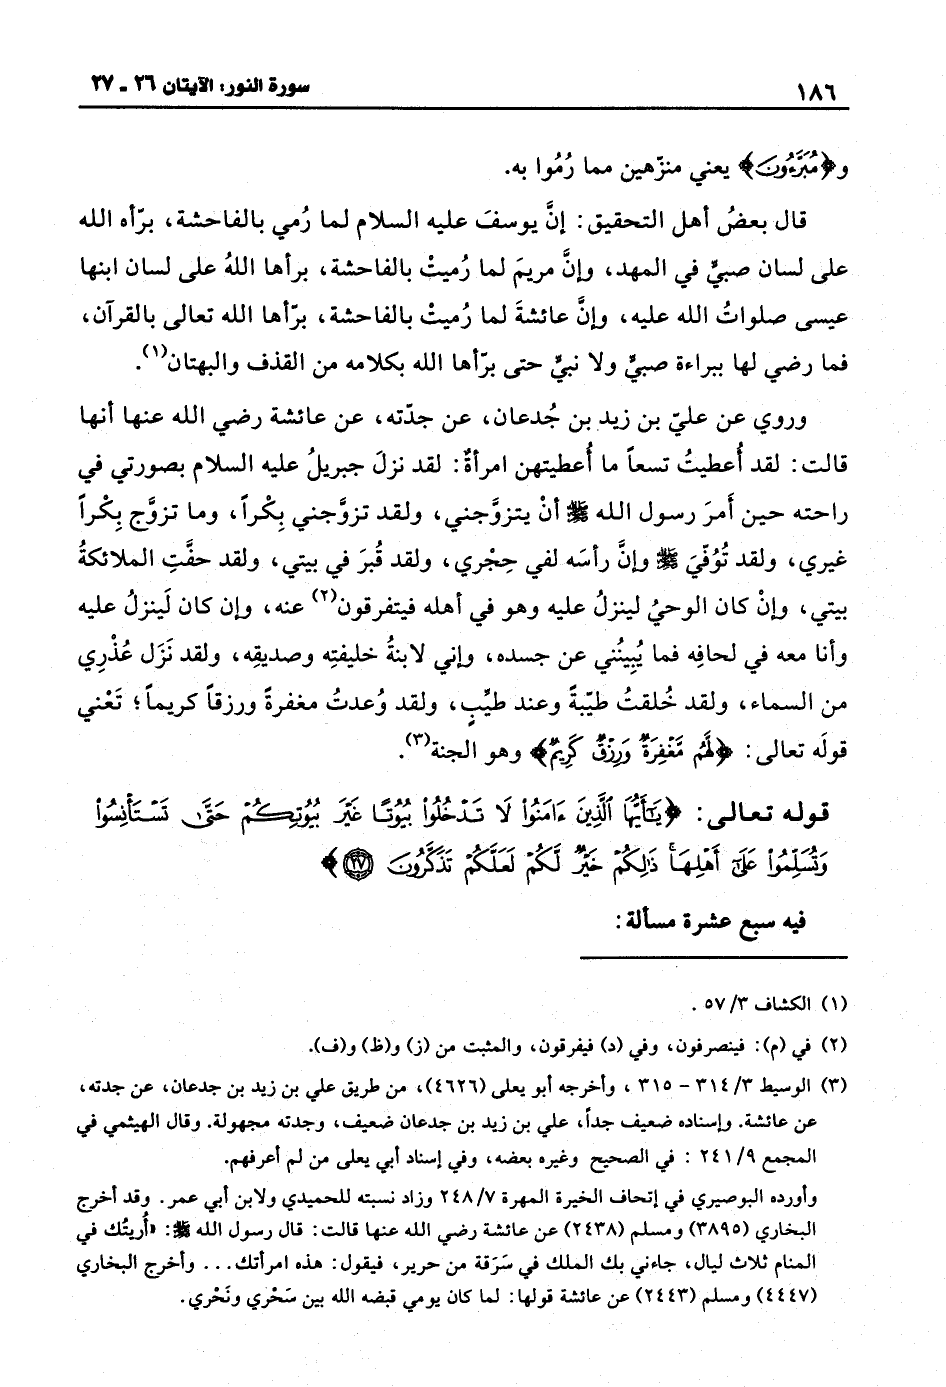 ١٨٦
سورة النور: الآيتان ٢٦ - ٢٧
و﴿مُبَرَّءُونَ﴾ يعني منزّهين مما رُمُوا به.
قال بعضُ أهل التحقيق: إنَّ يوسفَ عليه السلام لما رُمي بالفاحشة، برّأه الله
على لسان صبيٍّ في المهد، وإنَّ مريمَ لما رُميتْ بالفاحشة، برأها اللهُ على لسان ابنها
عيسى صلواتُ الله عليه، وإنَّ عائشةَ لما رُميتْ بالفاحشة، برّأها الله تعالى بالقرآن،
فما رضي لها ببراءة صبيٍّ ولا نبيٍّ حتى برّأها الله بكلامه من القذف والبهتان(١).
وروي عن عليّ بن زيد بن جُدعان، عن جدّته، عن عائشة رضي الله عنها أنها
قالت: لقد أُعطيتُ تسعاً ما أُعطيتهن امرأةٌ: لقد نزلَ جبريلُ عليه السلام بصورتي في
راحته حين أَمرَ رسول الله ﷺ أنْ يتزوَّجني، ولقد تزوَّجني بِكْراً، وما تزوَّج بِكْراً
غيري، ولقد تُوُفّيَ ﷺ وإنَّ رأسَه لفي حِجْري، ولقد قُبرَ في بيتي، ولقد حفَّتِ الملائكةُ
بيتي، وإنْ كان الوحيُ لينزلُ عليه وهو في أهله فيتفرقون(٢) عنه، وإن كان لَينزلُ عليه
وأنا معه في لحافِه فما يُبِينُني عن جسده، وإني لابنةُ خليفتِه وصديقِه، ولقد نَزَل عُذْري
من السماء، ولقد خُلقتُ طيّبةً وعند طيِّبٍ، ولقد وُعدتُ مغفرةً ورزقاً كريماً؛ تَعْني
قولَه تعالى: ﴿لَهُم مَّغْفِرَةٌ وَرِزْقٌ كَرِيمٌ﴾ وهو الجنة(٣).
قوله تعالى: ﴿يَٰٓأَيُّهَا ٱلَّذِينَ ءَامَنُوا۟ لَا تَدْخُلُوا۟ بُيُوتًا غَيْرَ بُيُوتِكُمْ حَتَّىٰ تَسْتَأْنِسُوا۟
وَتُسَلِّمُوا۟ عَلَىٰٓ أَهْلِهَا ۚ ذَٰلِكُمْ خَيْرٌ لَّكُمْ لَعَلَّكُمْ تَذَكَّرُونَ ٢٧﴾
فيه سبع عشرة مسألة:
(١) الكشاف ٥٧/٣ .
(٢) في (م): فينصرفون، وفي (د) فيفرقون، والمثبت من (ز) و(ظ) و(ف).
(٣) الوسيط ٣١٤/٣ - ٣١٥ ، وأخرجه أبو يعلى (٤٦٢٦)، من طريق علي بن زيد بن جدعان، عن جدته،
عن عائشة. وإسناده ضعيف جداً، علي بن زيد بن جدعان ضعيف، وجدته مجهولة. وقال الهيثمي في
المجمع ٢٤١/٩ : في الصحيح وغيره بعضه، وفي إسناد أبي يعلى من لم أعرفهم.
وأورده البوصيري في إتحاف الخيرة المهرة ٢٤٨/٧ وزاد نسبته للحميدي ولابن أبي عمر. وقد أخرج
البخاري (٣٨٩٥) ومسلم (٢٤٣٨) عن عائشة رضي الله عنها قالت: قال رسول الله ﷺ: «أُريتُك في
المنام ثلاث ليال، جاءني بك الملك في سَرَقة من حرير، فيقول: هذه امرأتك... وأخرج البخاري
(٤٤٤٧) ومسلم (٢٤٤٣) عن عائشة قولها: لما كان يومي قبضه الله بين سَحْري ونَحْري.